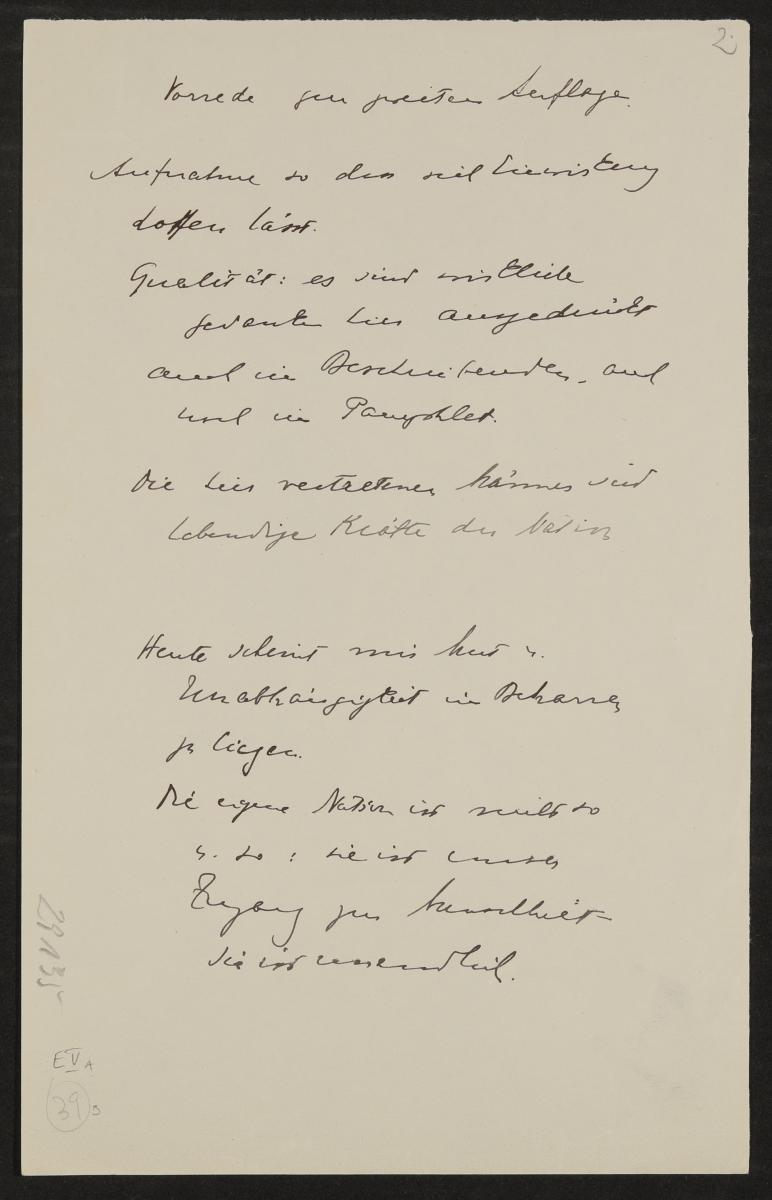 2.
Vorrede zur zweiten Auflage.
Aufnahme so dass viel Einwirkung
hoffen lässt.
Qualität: es sind wirkliche
Gedanken hier ausgedrückt
auch im Beschreibenden, auch
noch im Pamphlet.
Die hier vertretenen Männer sind
lebendige Kräfte der Nation
Heute scheint mir Mut u.
Unabhängigkeit im Beharren
zu liegen.
Die eigene Nation ist nicht so
u. so : sie ist unser
Zugang zur Menschheit
sie ist unendlich.
29135
E V A
39